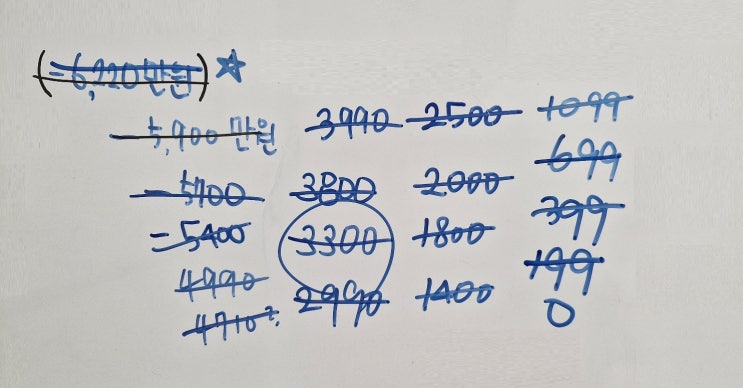 (-6,220만원) ☆
-5,900만원
-5700
-5400
4990
4710?
3990
3800
3300
2990
2500
2000
1800
1400
1099
699
399
199
0